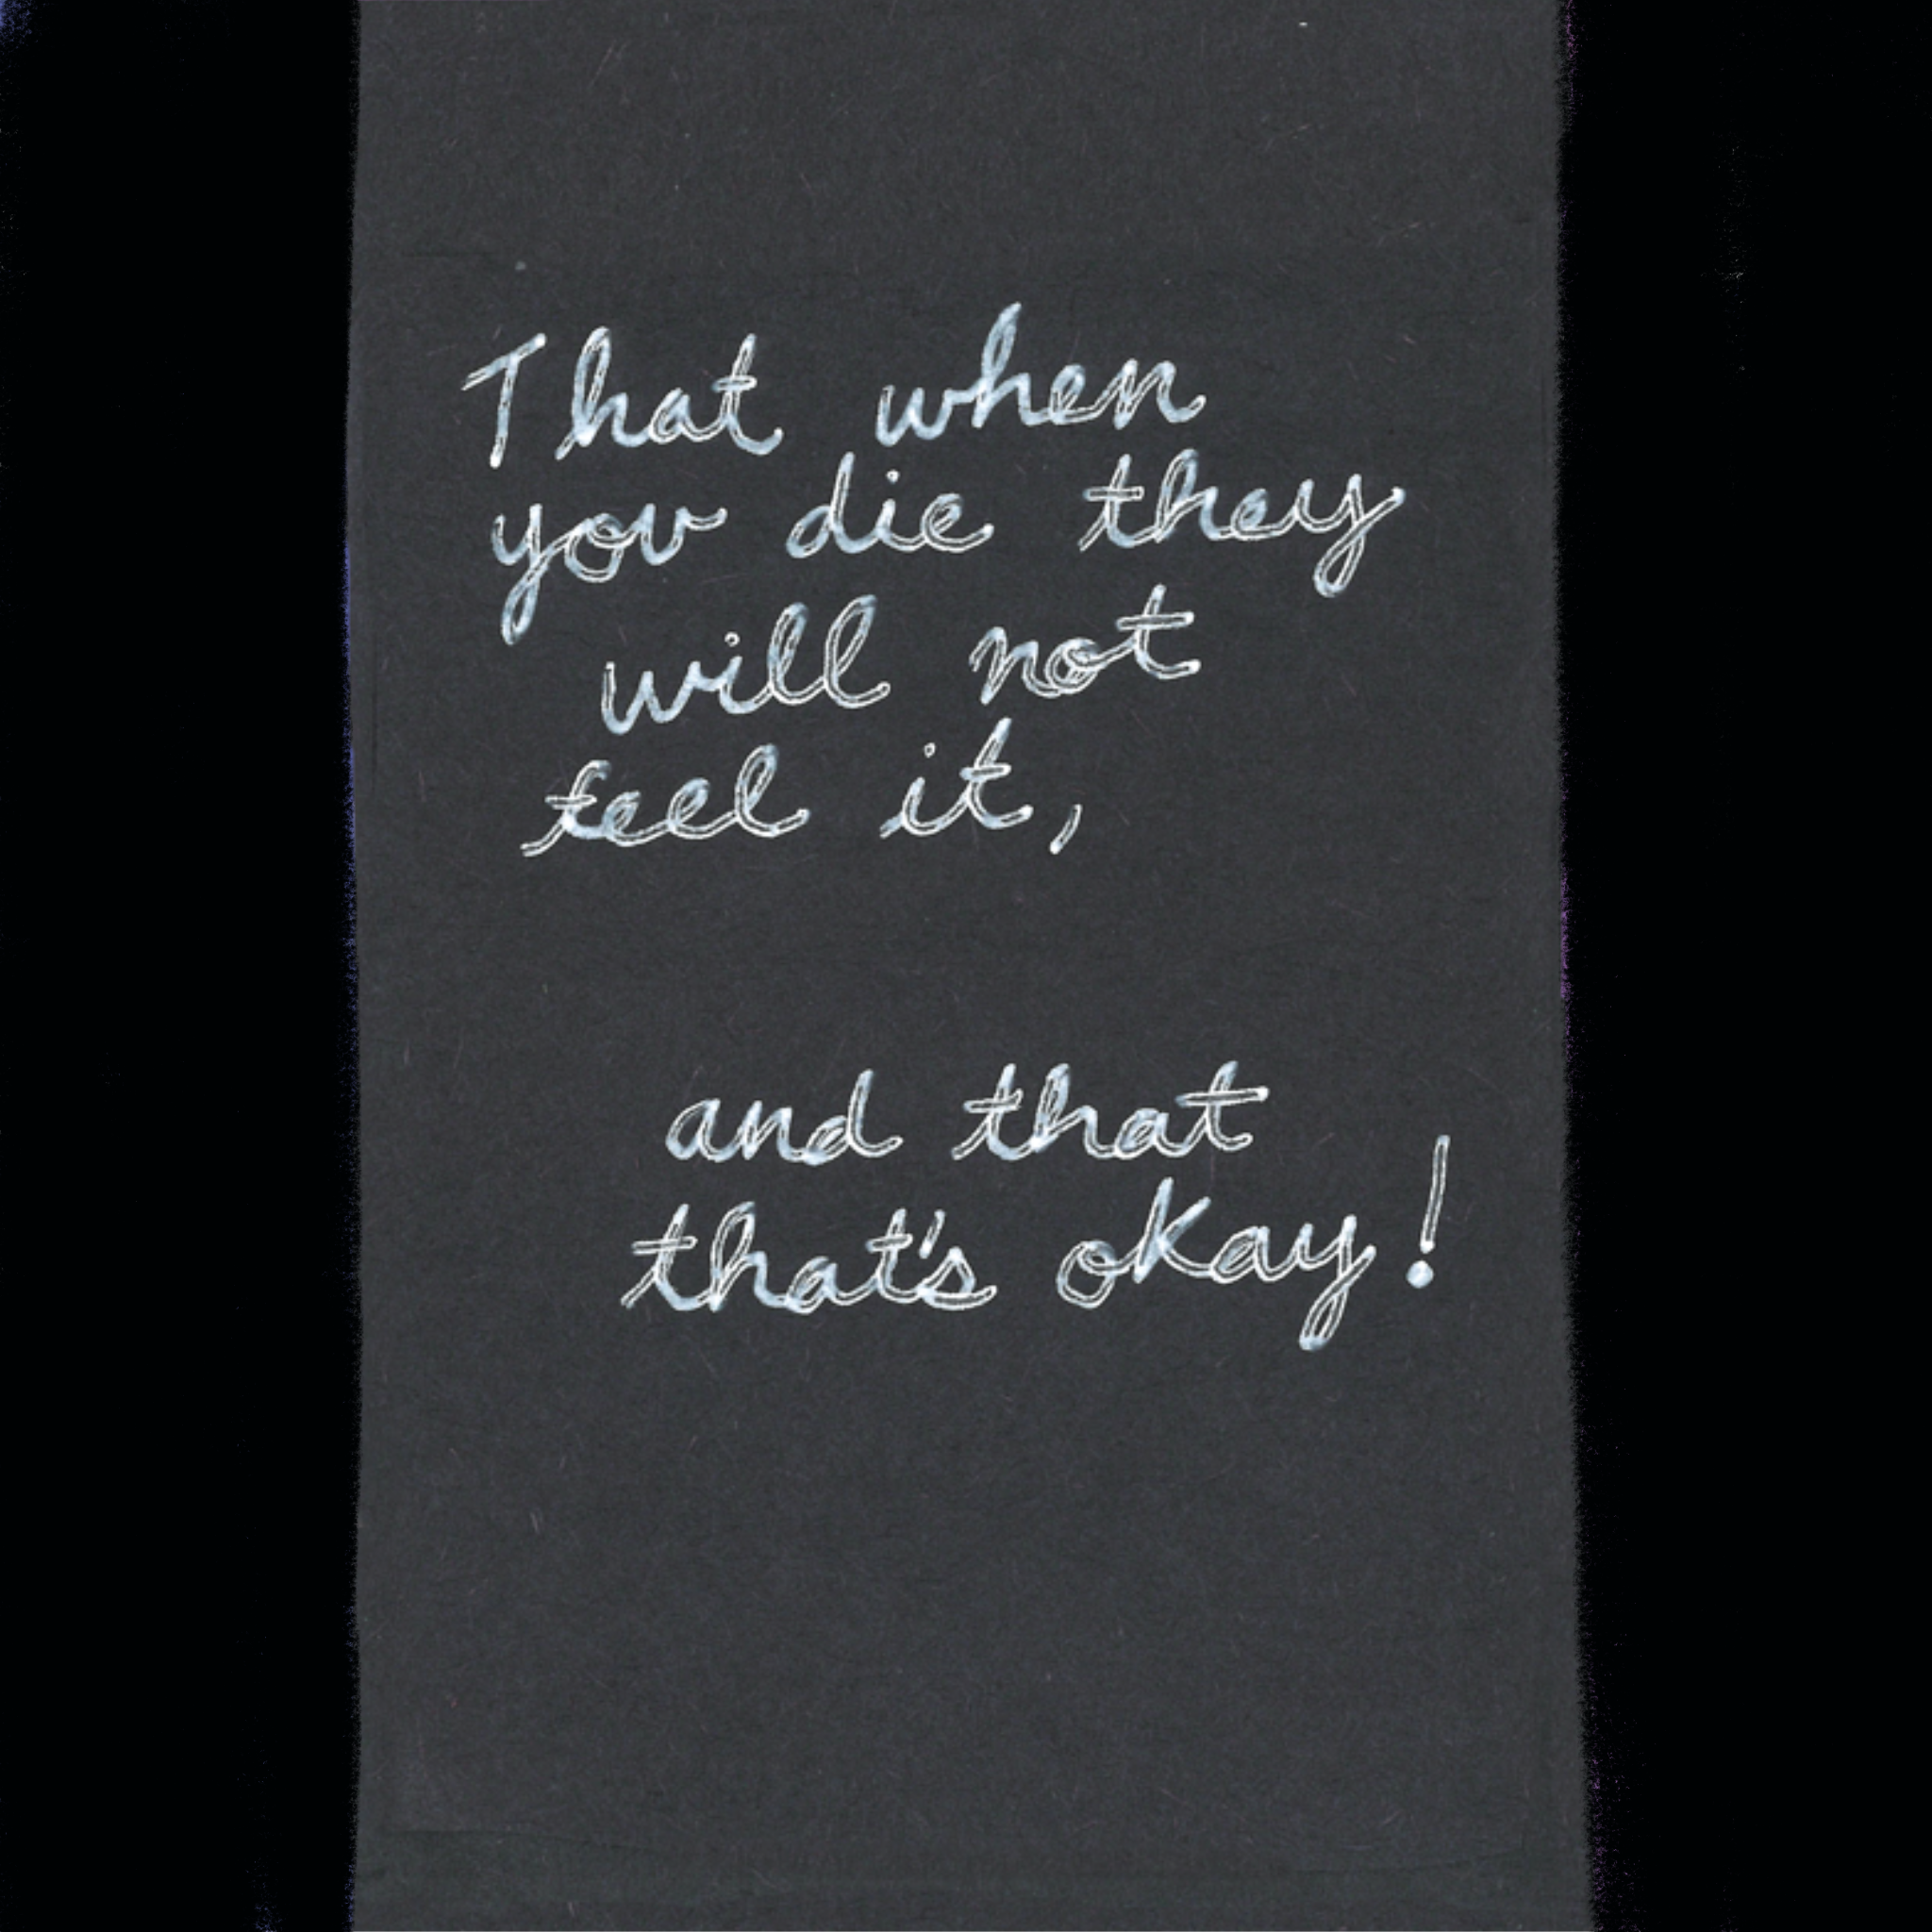 That when
you die they
will not
feel it,
and that
that's okay!